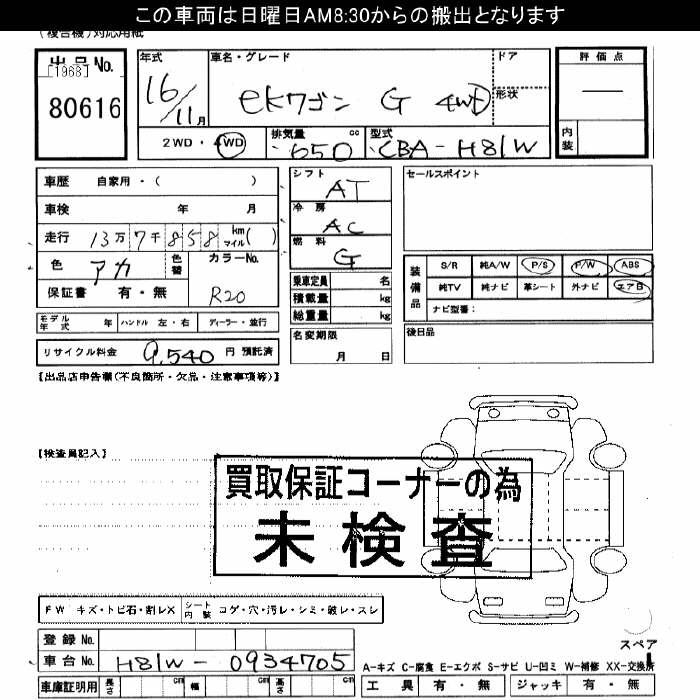 この車両は日曜日AM8:30からの搬出となります
(複合機)対応用紙
出品No.
[1968]
80616
年式
16/11月
車名・グレード
eKワゴン G 4WD
ドア
形状
評価点
―
内装
2WD・4WD
排気量 cc
650
型式
CBA-H81W
車歴 自家用・( )
車検 年 月
走行 13万7千858 km マイル( )
色 アカ
色替
カラーNo.
R20
保証書 有・無
シフト
AT
冷房
AC
燃料
G
乗車定員 名
積載量 kg
総重量 kg
セールスポイント
装備品
S/R 純A/W P/S P/W ABS
純TV 純ナビ 革シート 外ナビ エアB
ナビ型番:
モデル年式 年 ハンドル 左・右 ディーラー・並行
名変期限
月 日
後日品
リサイクル料金 9,540 円 預託済
【出品店申告欄(不良箇所・欠品・注意事項等)】
【検査員記入】
買取保証コーナーの為
未検査
FW キズ・トビ石・割レX シート内装 コゲ・穴・汚レ・シミ・破レ・スレ
登録No.
車台No. H81W-0934705
スペア
A-キズ C-腐食 E-エクボ S-サビ U-凹ミ W-補修 XX-交換済
車庫証明用 長さ cm 幅 cm 高さ cm
工具 有・無 ジャッキ 有・無